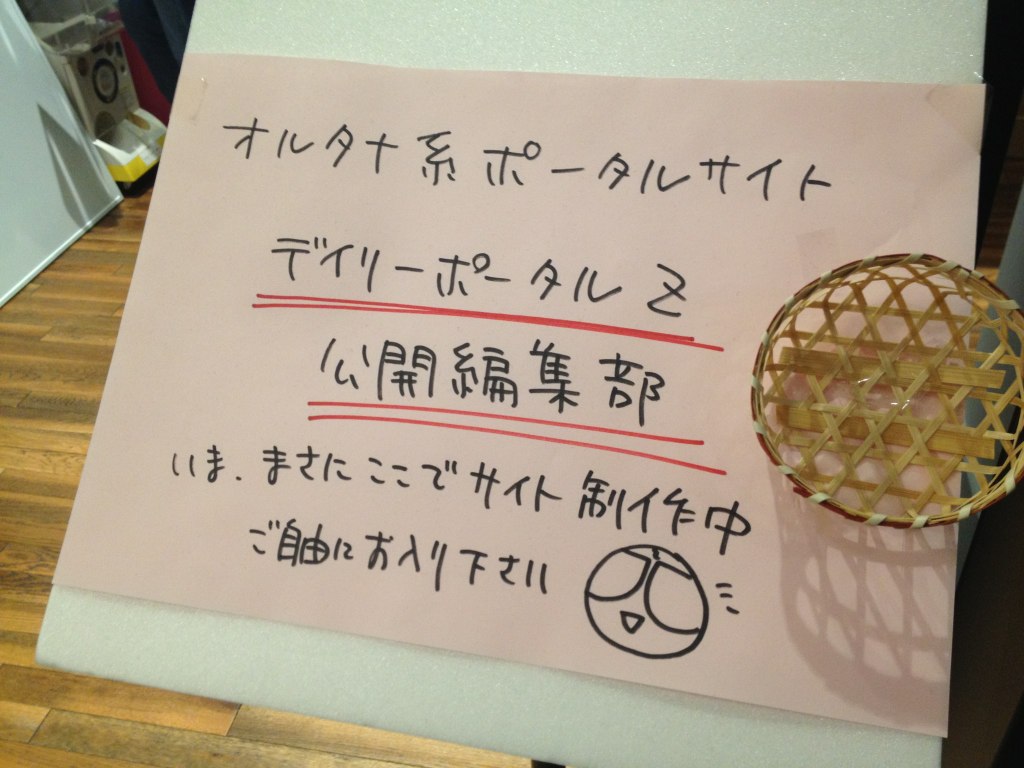 オルタナ系ポータルサイト
デイリーポータルZ
公開編集部
いま、まさにここでサイト制作中
ご自由にお入り下さい